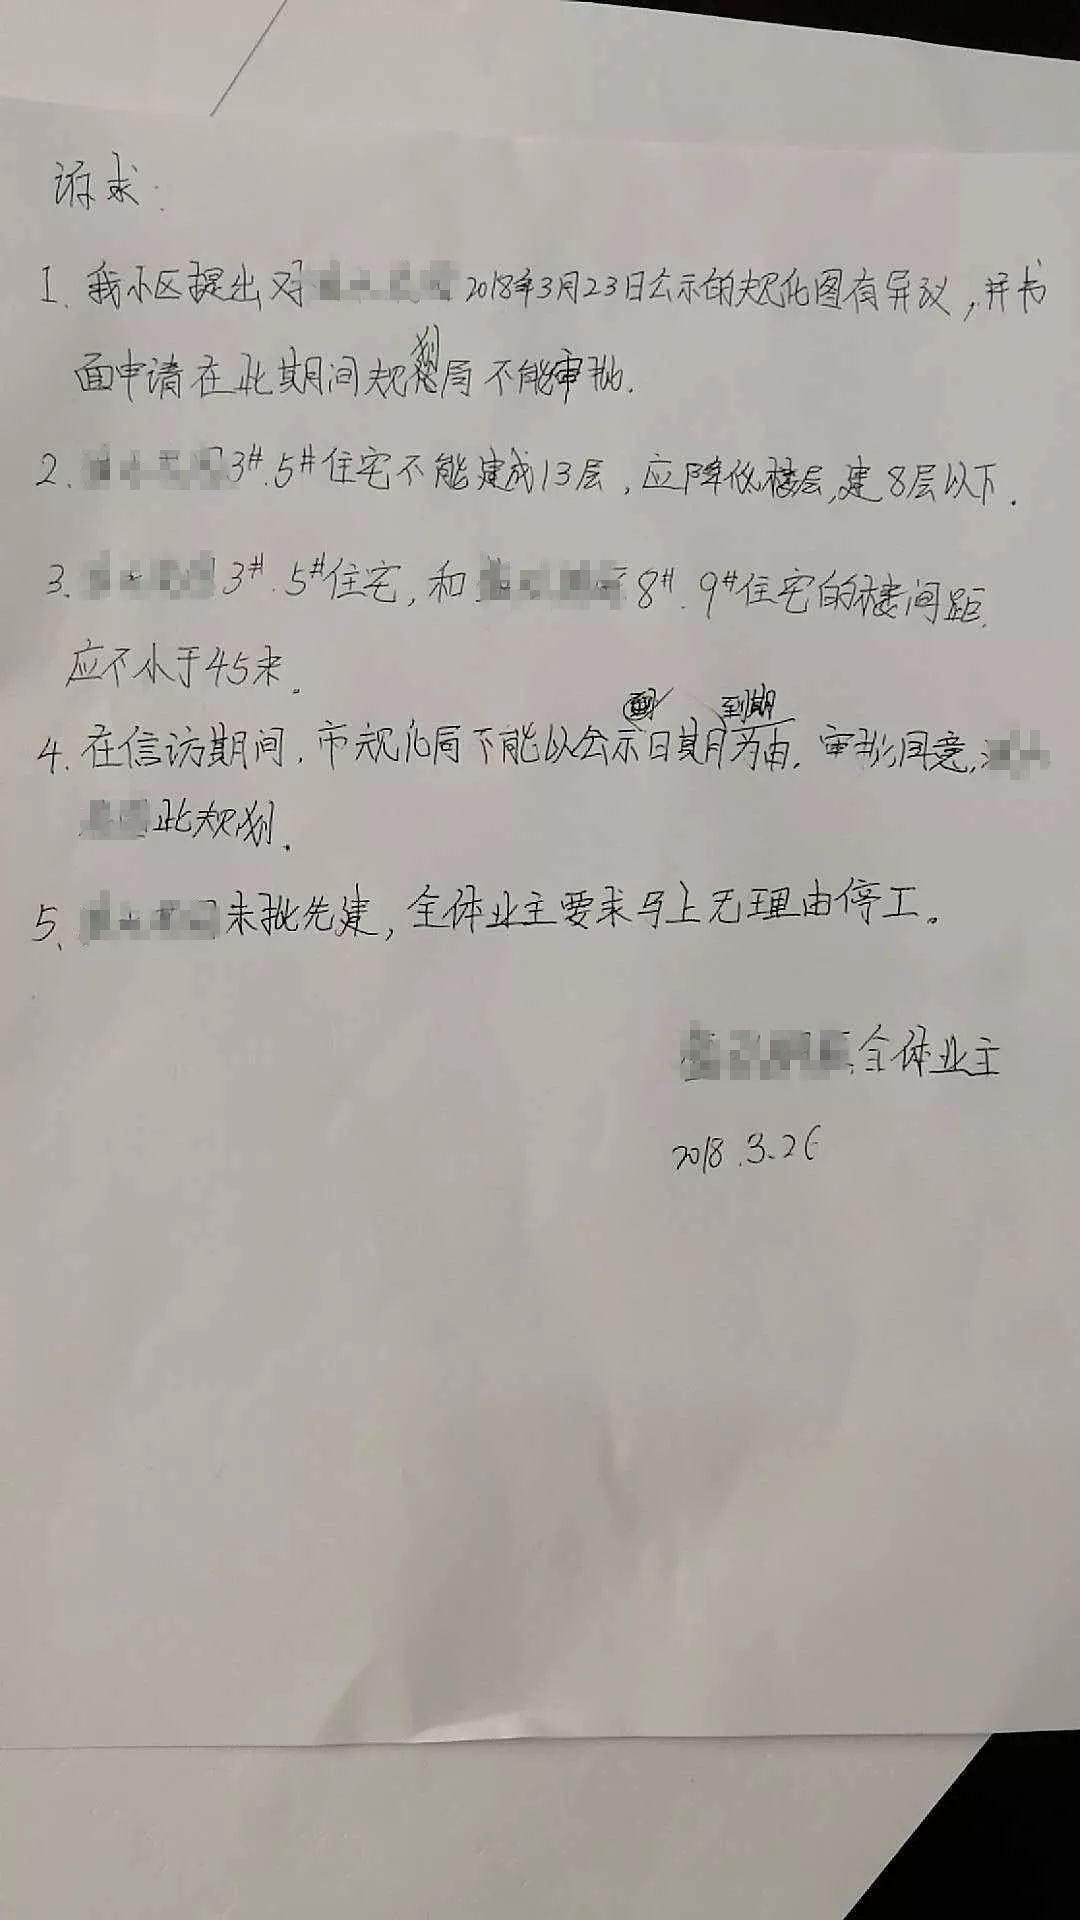 诉求：
1. 我小区提出对 2018年3月23日公示的规化图有异议，并书
面申请在此期间规划局不能审批.
2. 3#.5#住宅不能建成13层，应降低楼层,建8层以下.
3. 3#.5#住宅，和 8#.9#住宅的楼间距
应不小于45米.
4. 在信访期间，市规化局不能以公示日期到期为由.审批同意,
此规划.
5、 未批先建，全体业主要求马上无理由停工。
全体业主
2018.3.26